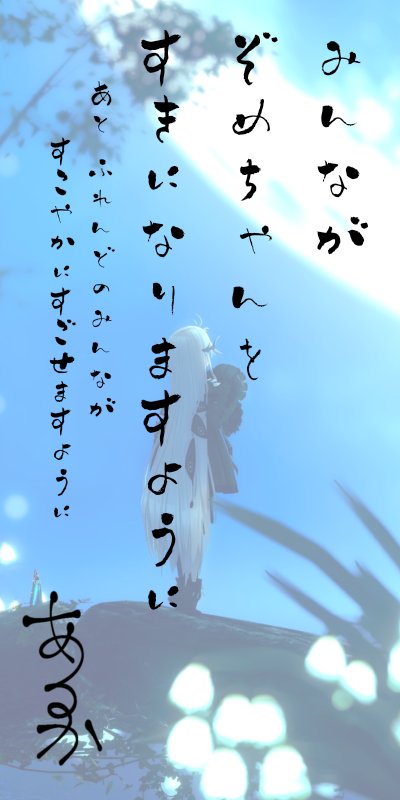 みんなが
ぞめちゃんを
すきになりますように
あとふれんどのみんなが
すこやかにすごせますように
あるか